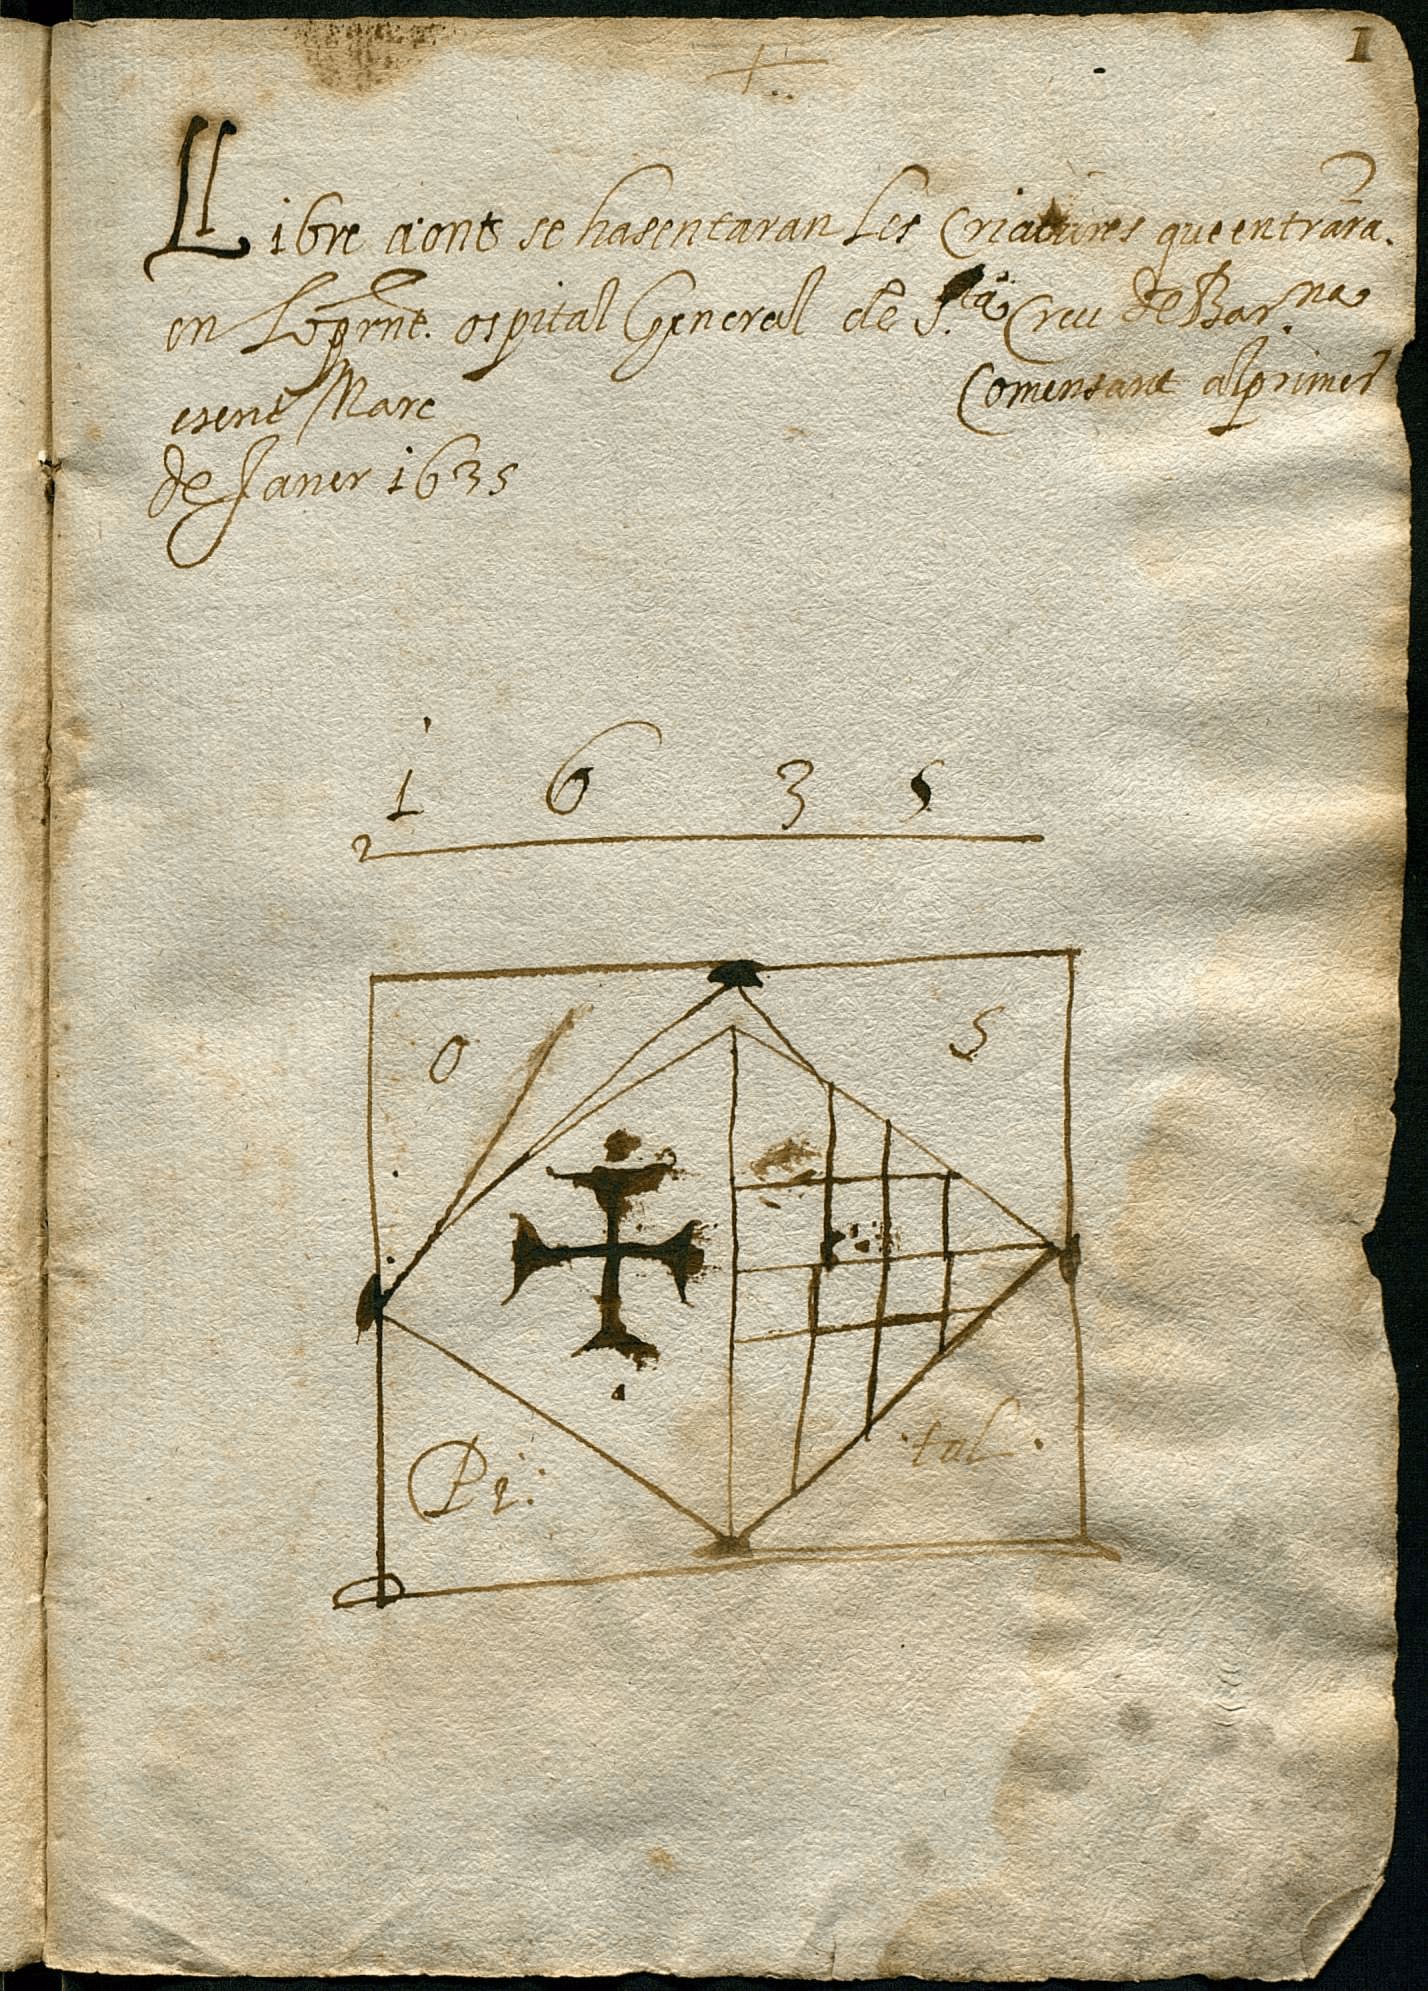 1
LLibre aont se hasentaran Les Criatures que entrãra.
en Lo prnt. ospital General de S.ta Creu de Bar.na
esent Mare Comensant alprimer
de Janer 1635
1 6 3 5
O S
Pi: .tal.